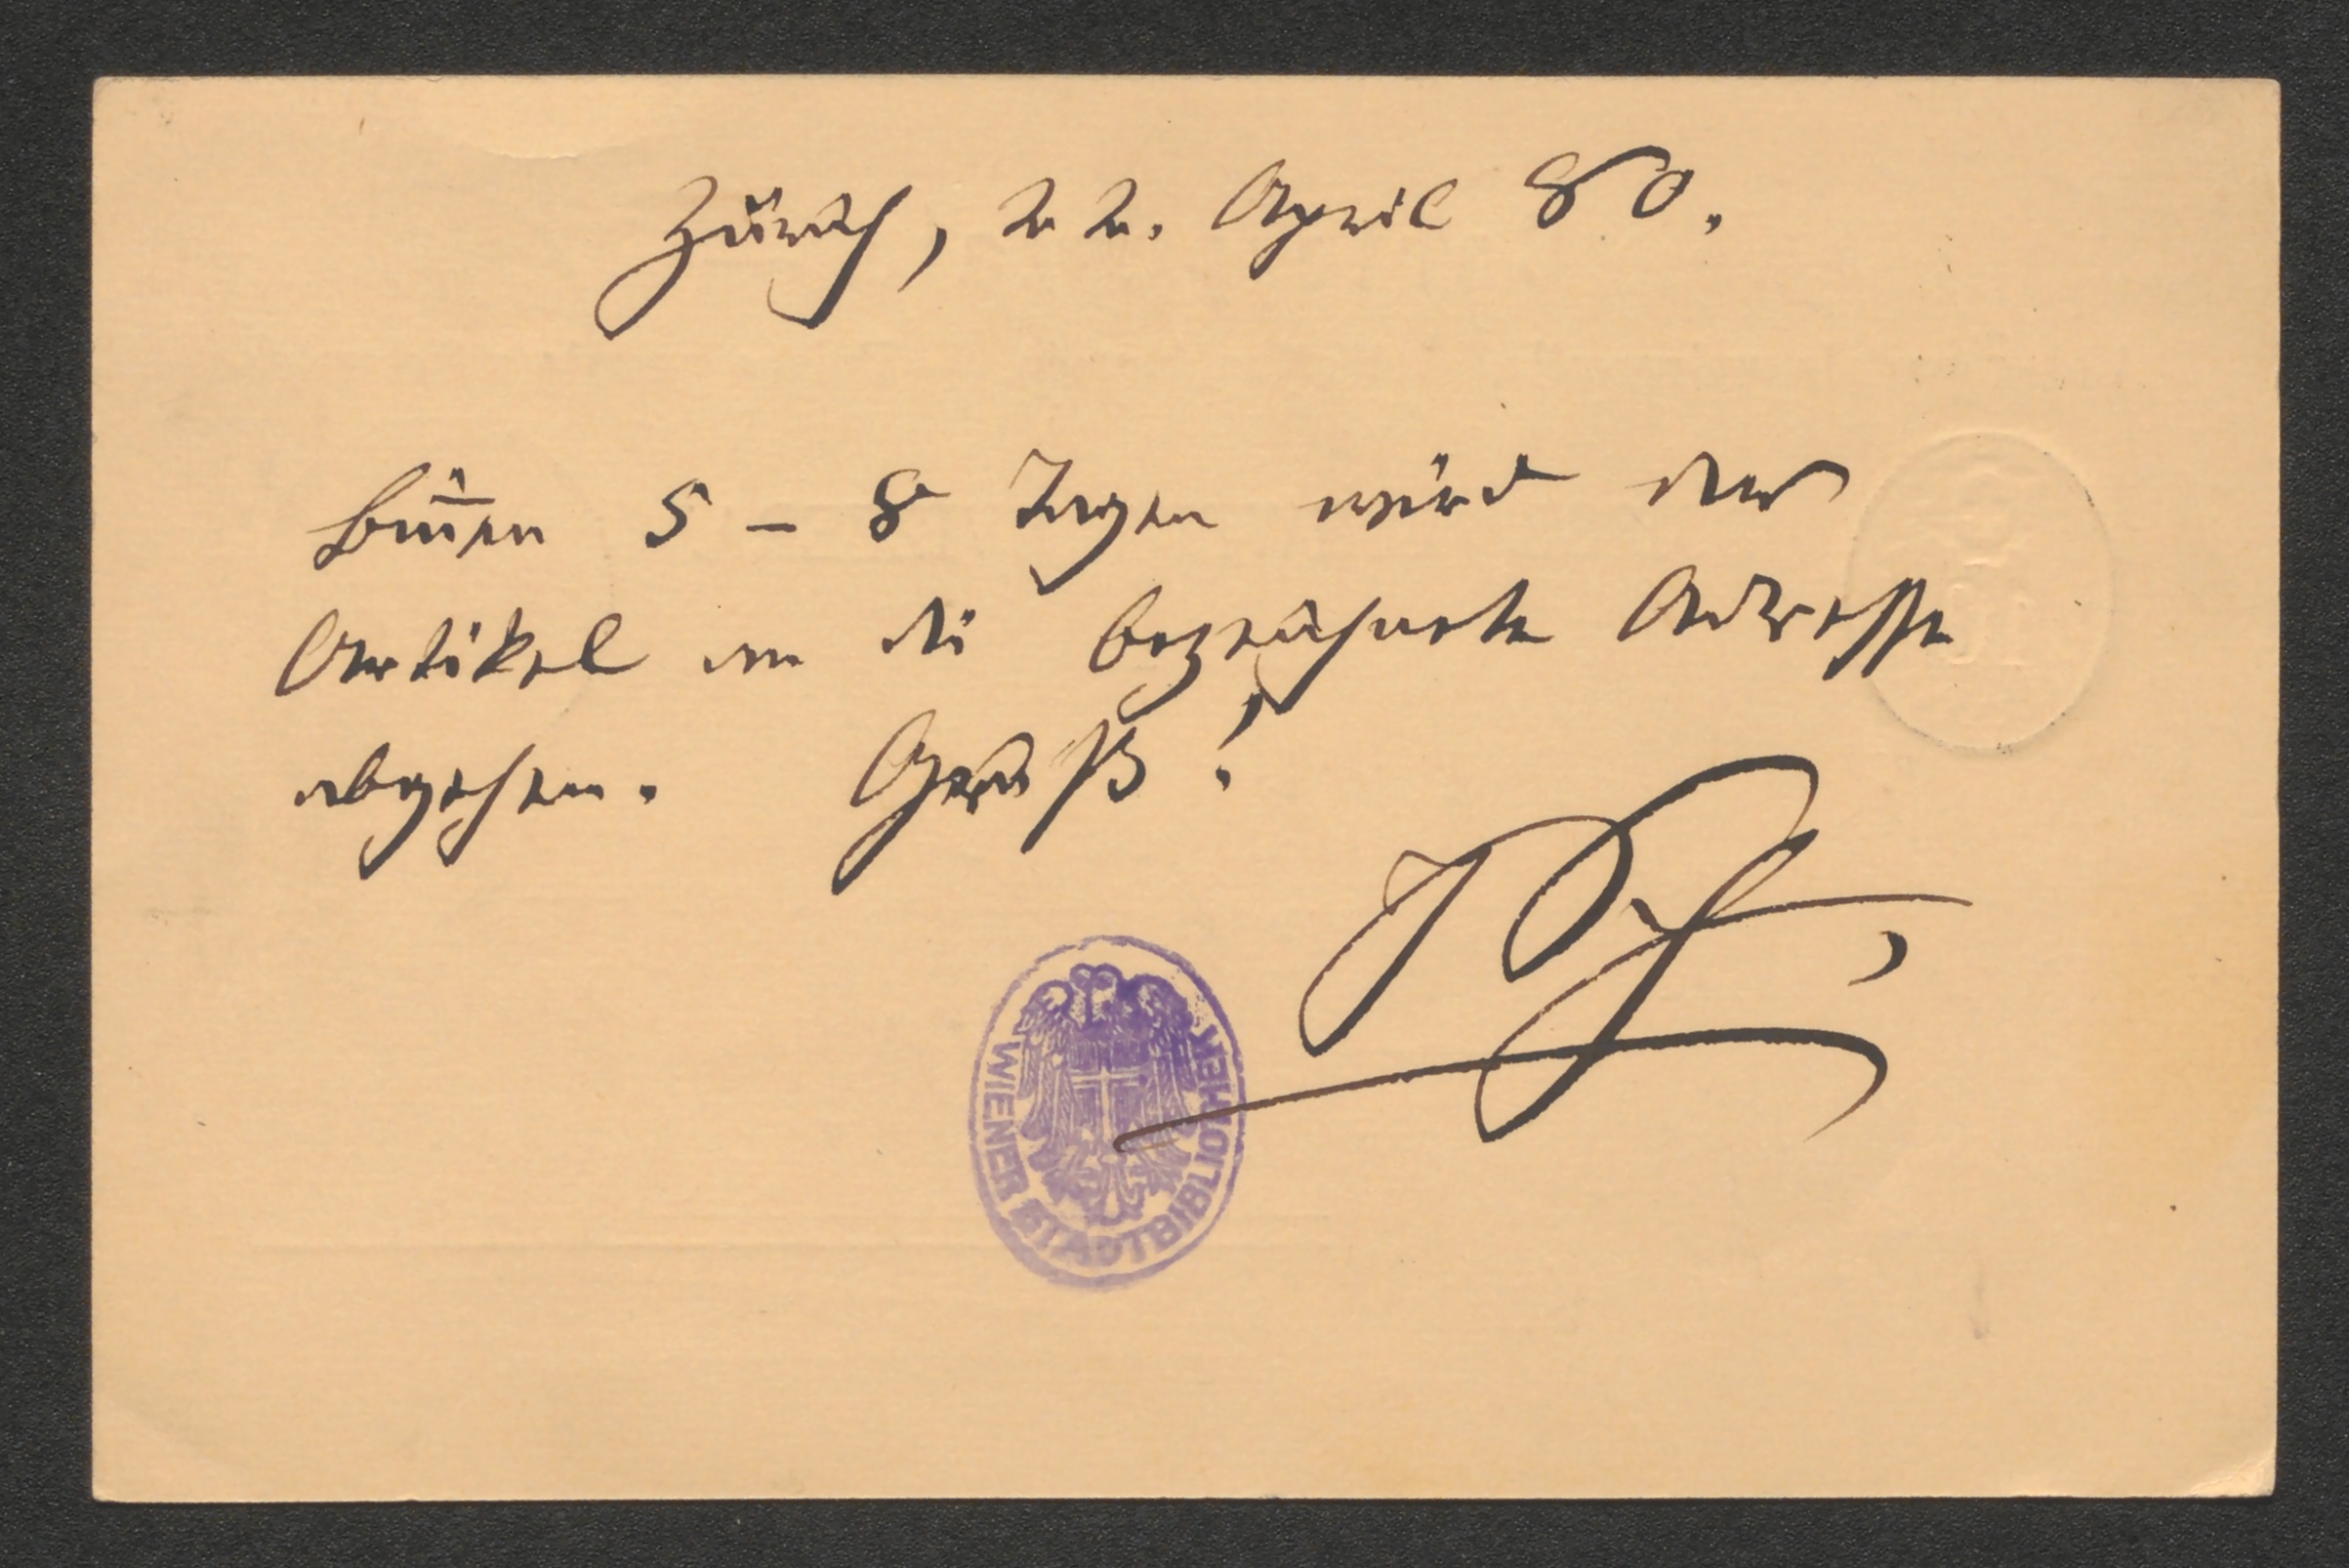 Zürich, 22. April 80.
Bin̄en 5 – 8 Tagen wird der
Artikel an die bezeichnete Adresse
abgehen. Gruß!
WIENER STADTBIBLIOTHEK